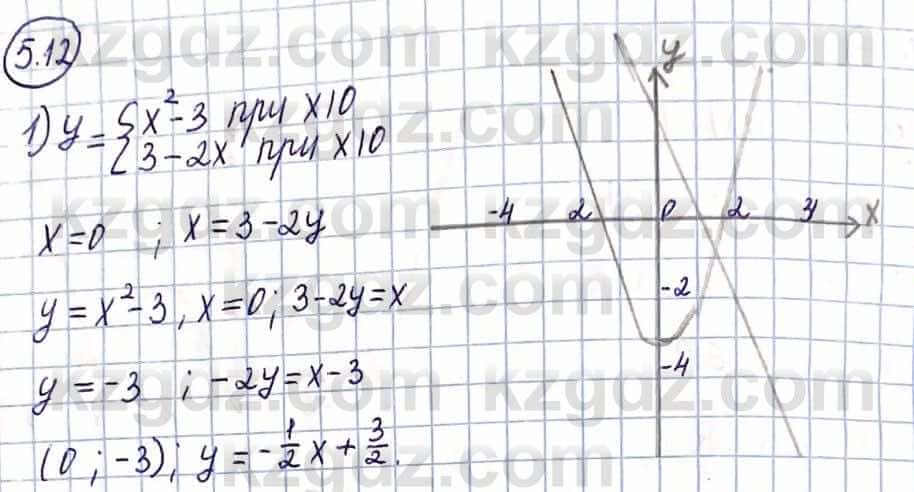 5.12
1) y = { x² - 3 при x10
{ 3 - 2x при x10
x = 0 ; x = 3 - 2y
y = x² - 3, x = 0; 3 - 2y = x
y = -3 ; -2y = x - 3
(0 ; -3); y = -1/2 x + 3/2.
y
-4 2 0 2 34 x
-2
-4
kzgdz.com kzgdz.com
kzgdz.com kzgdz.com
kzgdz.com kzgdz.com
kzgdz.com kzgdz.com
kzgdz.com kzgdz.com
kzgdz.com kzgdz.com